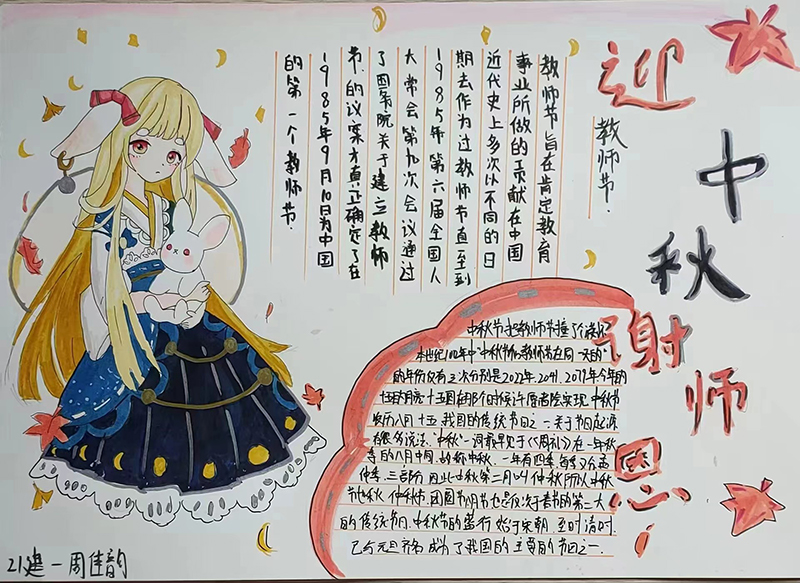 迎
中秋
谢师恩
教师节.
教师节旨在肯定教育
事业所做的贡献在中国
近代史上多次以不同的日
期去作为过教师节直至到
1985年第六届全国人
大常会第九次会议通过
了国务院关于建立教师
节的议案才真正确定了在
1985年9月10日为中国
的第一个教师节.
中秋节把教师节撞了个满怀
本世纪100年中"中秋节和教师节在同一天的"
的年份仅有三次分别是2022年.2041.2079年.今年的
十五的月亮十五圆在那个时候许愿者险实现.中秋节
农历八月十五.我国的传统节日之一关于节日起源
有很多说法."中秋"一词最早见于《周礼》在一年秋
季的八月中旬.故称中秋.一年有四季.每季又分孟
仲季.三部分因此秋第二月叫仲秋所以中秋
节也称秋.仲秋节.团圆节.节也是仅次于春节的第二大
的传统节日.中秋节的盛行始于宋朝.至时清时.
已与元旦齐名成为了我国的主要的节日之一.
21建一周佳韵